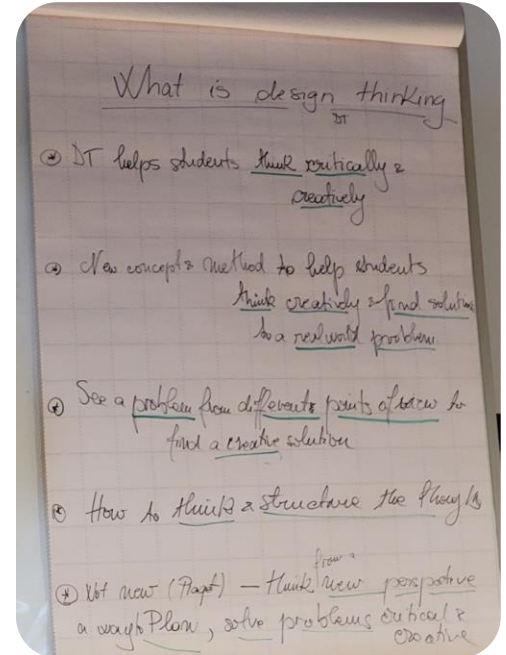 What is design thinking
DT
DT helps students think critically &
creatively
New concept & method to help students
think creatively & find solution
to a real world problem
See a problem from differents points of view to
find a creative solution
How to think & structure the
Not new (Piaget) – think from a new perspective
a way to Plan, solve problems critical &
creative